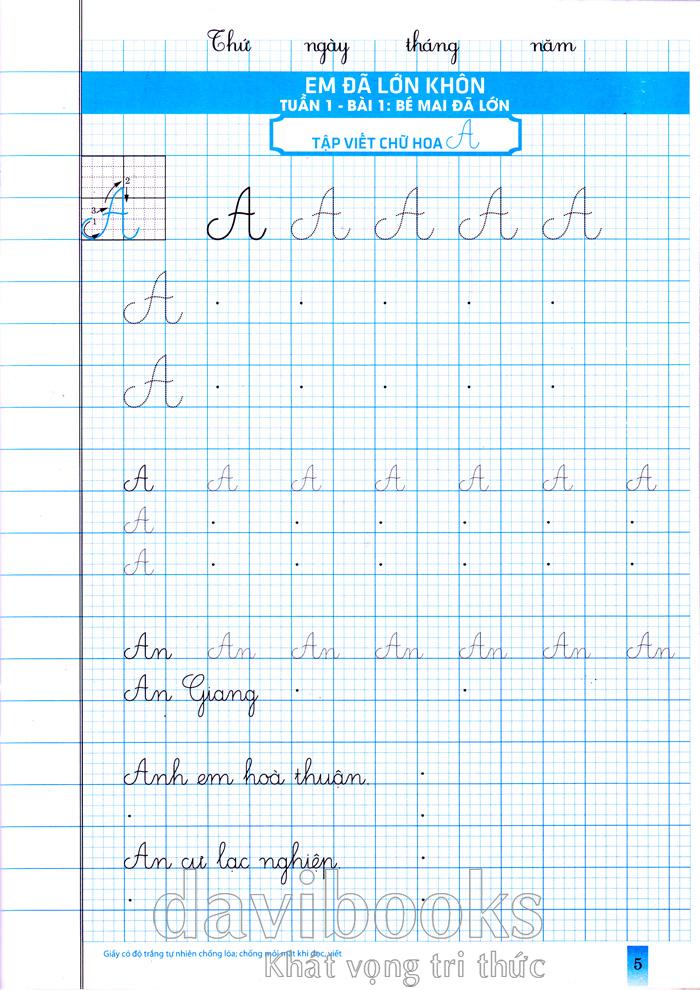 Thứ ngày tháng năm
EM ĐÃ LỚN KHÔN
TUẦN 1 - BÀI 1: BÉ MAI ĐÃ LỚN
TẬP VIẾT CHỮ HOA A
2
3
1
A A A A A A
A
A
A A A A A A A
A
A
An An An An An An An
An Giang
Anh em hoà thuận.
An cư lạc nghiệp.
davibooks
Khát vọng tri thức
Giấy có độ trắng tự nhiên chống lóa; chống mỏi mắt khi đọc, viết
5